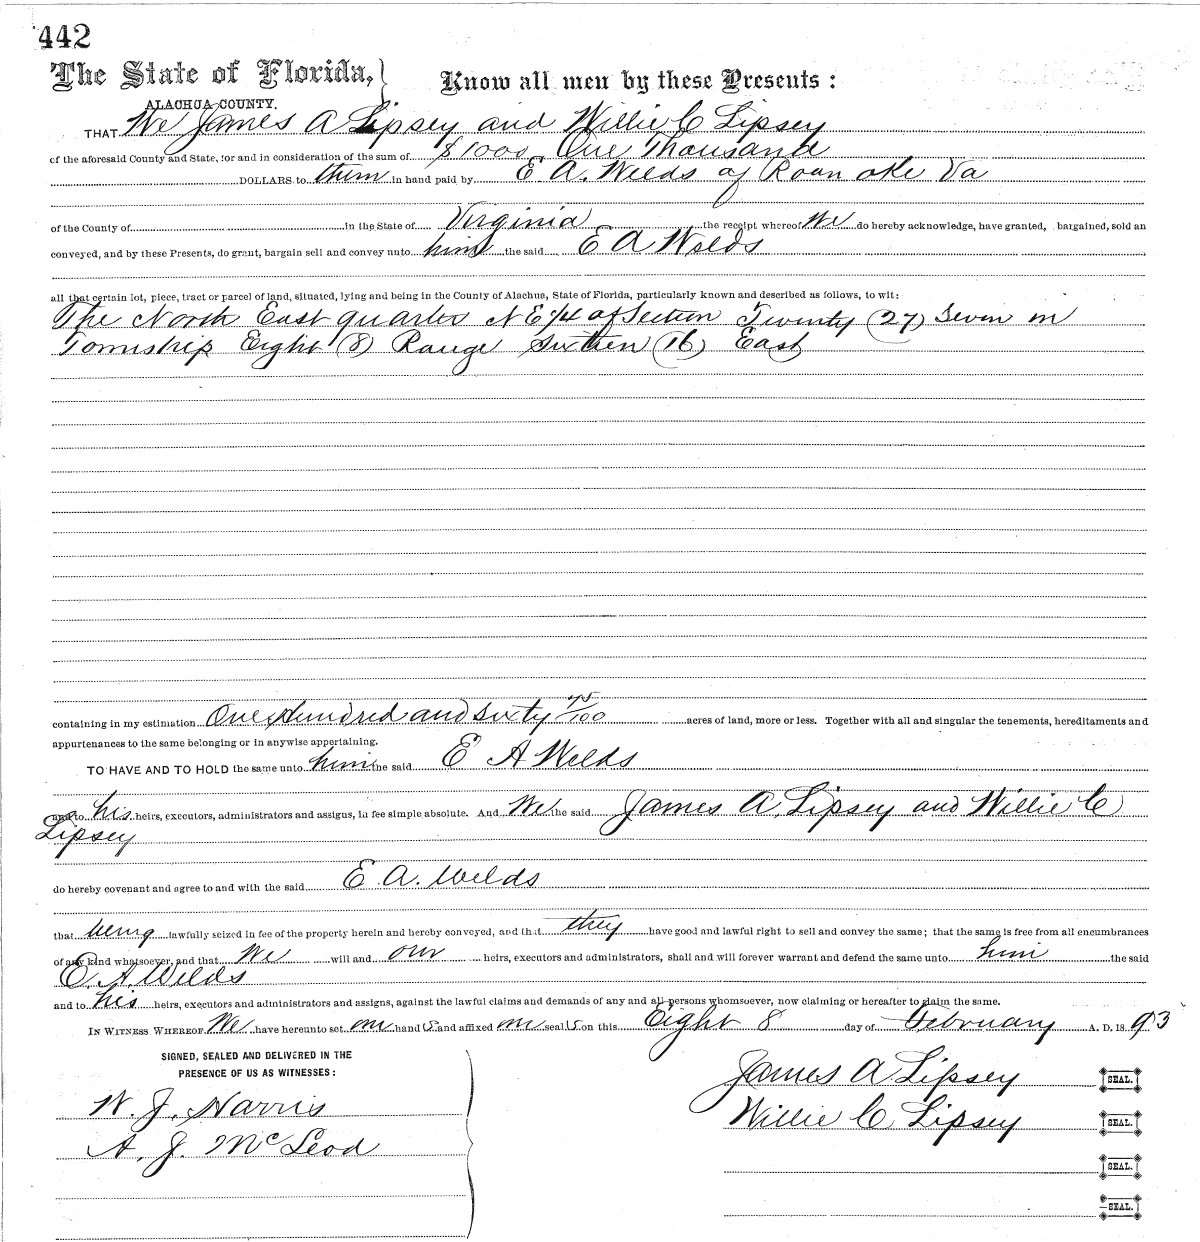 442
The State of Florida,
ALACHUA COUNTY.
Know all men by these Presents :
THAT We James A Lipsey and Willie C Lipsey
of the aforesaid County and State, for and in consideration of the sum of $1000 One Thousand
DOLLARS to them in hand paid by E A. Wilds of Roan oke Va
of the County of in the State of Virginia the receipt whereof We do hereby acknowledge, have granted, bargained, sold an
conveyed, and by these Presents, do grant, bargain sell and convey unto him the said E A Wilds
all that certain lot, piece, tract or parcel of land, situated, lying and being in the County of Alachua, State of Florida, particularly known and described as follows, to wit:
The North East quarter N E 1/4 of Section Twenty (27) Seven in
Township Eight (8) Range Sixteen (16) East
containing in my estimation One Hundred and Sixty 45/100 acres of land, more or less. Together with all and singular the tenements, hereditaments and
appurtenances to the same belonging or in anywise appertaining.
TO HAVE AND TO HOLD the same unto him the said E A Wilds
and to his heirs, executors, administrators and assigns, in fee simple absolute. And We the said James A. Lipsey and Willie C
Lipsey
do hereby covenant and agree to and with the said E A. Wilds
that being lawfully seized in fee of the property herein and hereby conveyed, and that they have good and lawful right to sell and convey the same; that the same is free from all encumbrances
of any kind whatsoever, and that We will and our heirs, executors and administrators, shall and will forever warrant and defend the same unto him the said
E. A. Wilds
and to his heirs, executors and administrators and assigns, against the lawful claims and demands of any and all persons whomsoever, now claiming or hereafter to claim the same.
IN WITNESS WHEREOF, We have hereunto set our hand s and affixed our seal s on this Eight 8 day of February A. D. 18 93
SIGNED, SEALED AND DELIVERED IN THE
PRESENCE OF US AS WITNESSES:
James A Lipsey SEAL.
W. J. Harris
Willie C Lipsey SEAL.
A. J. McLeod
SEAL.
SEAL.